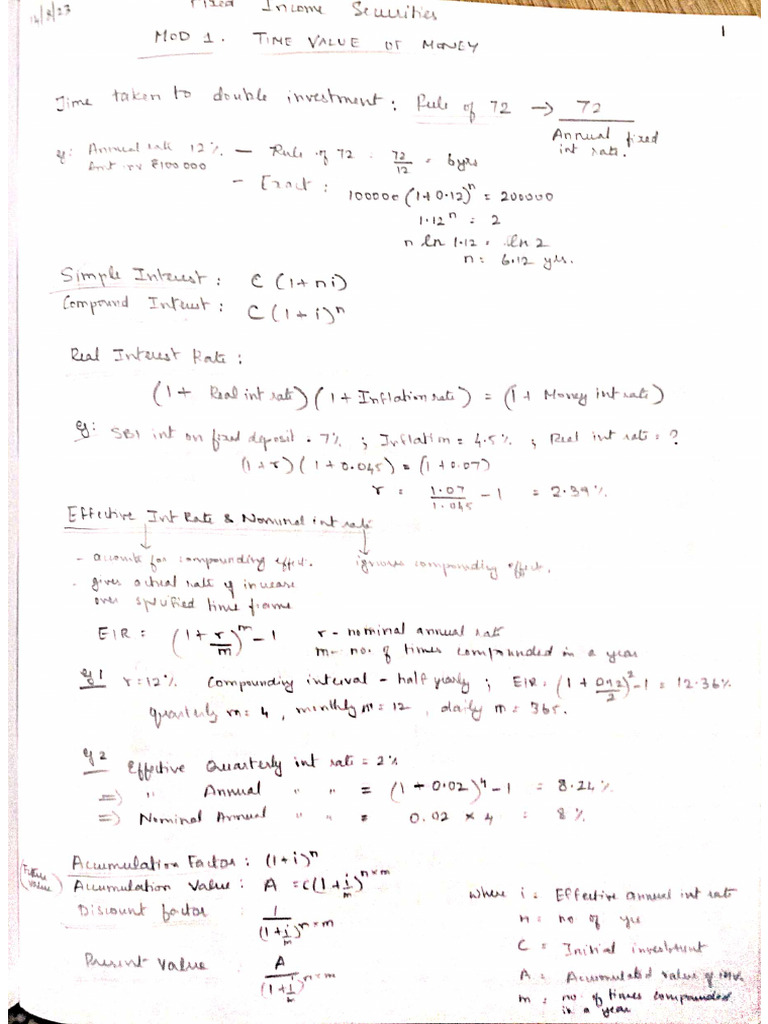 14/8/23 Fixed Income Securities 1
MOD 1. TIME VALUE OF MONEY
Time taken to double investment: Rule of 72 → 72 / Annual fixed int rate.
eg: Annual rate 12% — Rule of 72 : 72/12 = 6 yrs
Amt inv ₹100000
- Exact : 100000 (1+0.12)^n = 200000
1.12^n = 2
n ln 1.12 = ln 2
n = 6.12 yrs.
Simple Interest : C (1+ni)
Compound Interest : C (1+i)^n
Real Interest Rate :
(1 + Real int rate) (1 + Inflation rate) = (1 + Money int rate)
eg: SBI int on fixed deposit = 7% ; Inflation = 4.5% ; Real int rate = ?
(1+r) (1+0.045) = (1+0.07)
r = 1.07/1.045 - 1 = 2.39%
Effective Int Rate & Nominal int rate
- accounts for compounding effect. ignores compounding effect.
- gives actual rate of increase
over specified time frame
EIR = (1 + r/m)^m - 1 r - nominal annual rate
m - no. of times compounded in a year
eg 1 r = 12% Compounding interval - half yearly ; EIR = (1 + 0.12/2)^2 - 1 = 12.36%
quarterly m = 4 , monthly m = 12 , daily m = 365.
eg 2 Effective Quarterly int rate = 2%
=) " Annual " " = (1 + 0.02)^4 - 1 = 8.24%
=) Nominal Annual " " = 0.02 × 4 = 8%
Accumulation Factor : (1+i)^n
(Future value) Accumulation Value : A = C(1+i/m)^n×m
Discount factor : 1/(1+i/m)^n×m
Present Value A/(1+i/m)^n×m
where i = Effective annual int rate
n = no of yrs
C = Initial investment
A = Accumulated value of inv.
m = no. of times compounded
in a year